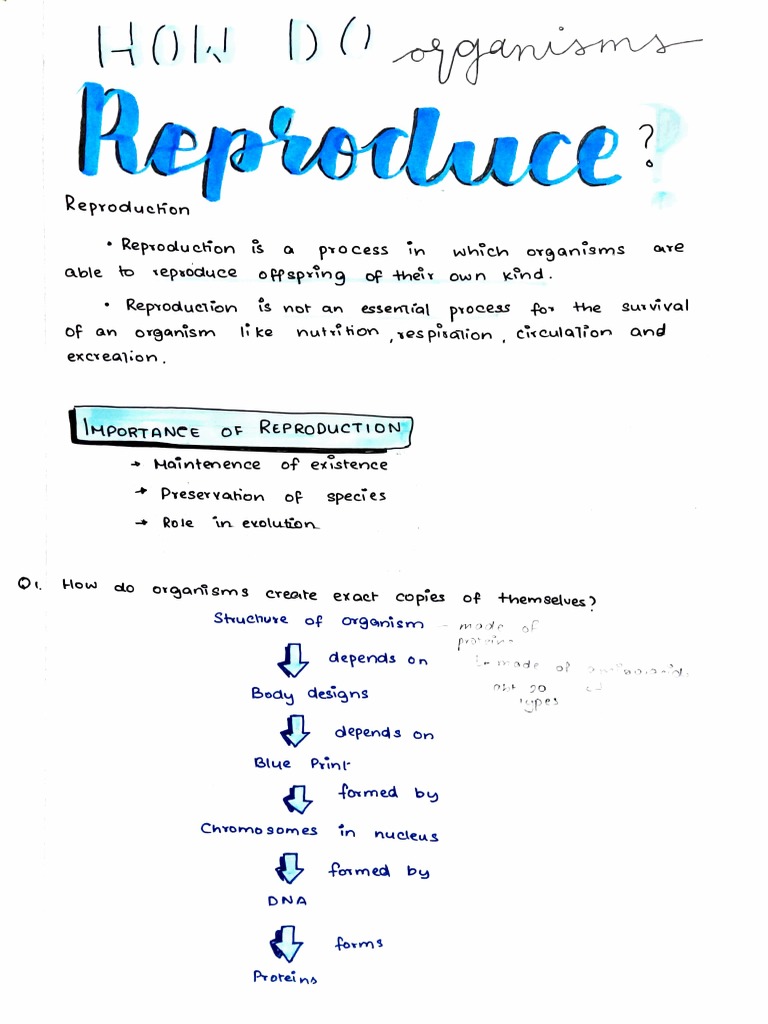 HOW DO organisms
Reproduce?
Reproduction
• Reproduction is a process in which organisms are
able to reproduce offspring of their own kind.
• Reproduction is not an essential process for the survival
of an organism like nutrition, respiration, circulation and
excreation.
IMPORTANCE OF REPRODUCTION
→ Maintenence of existence
→ Preservation of species
→ Role in evolution
Q1. How do organisms create exact copies of themselves?
Structure of organism - made of
protein
depends on
made of
Body designs
20
types
depends on
Blue Print
formed by
Chromosomes in nucleus
formed by
DNA
forms
Proteins